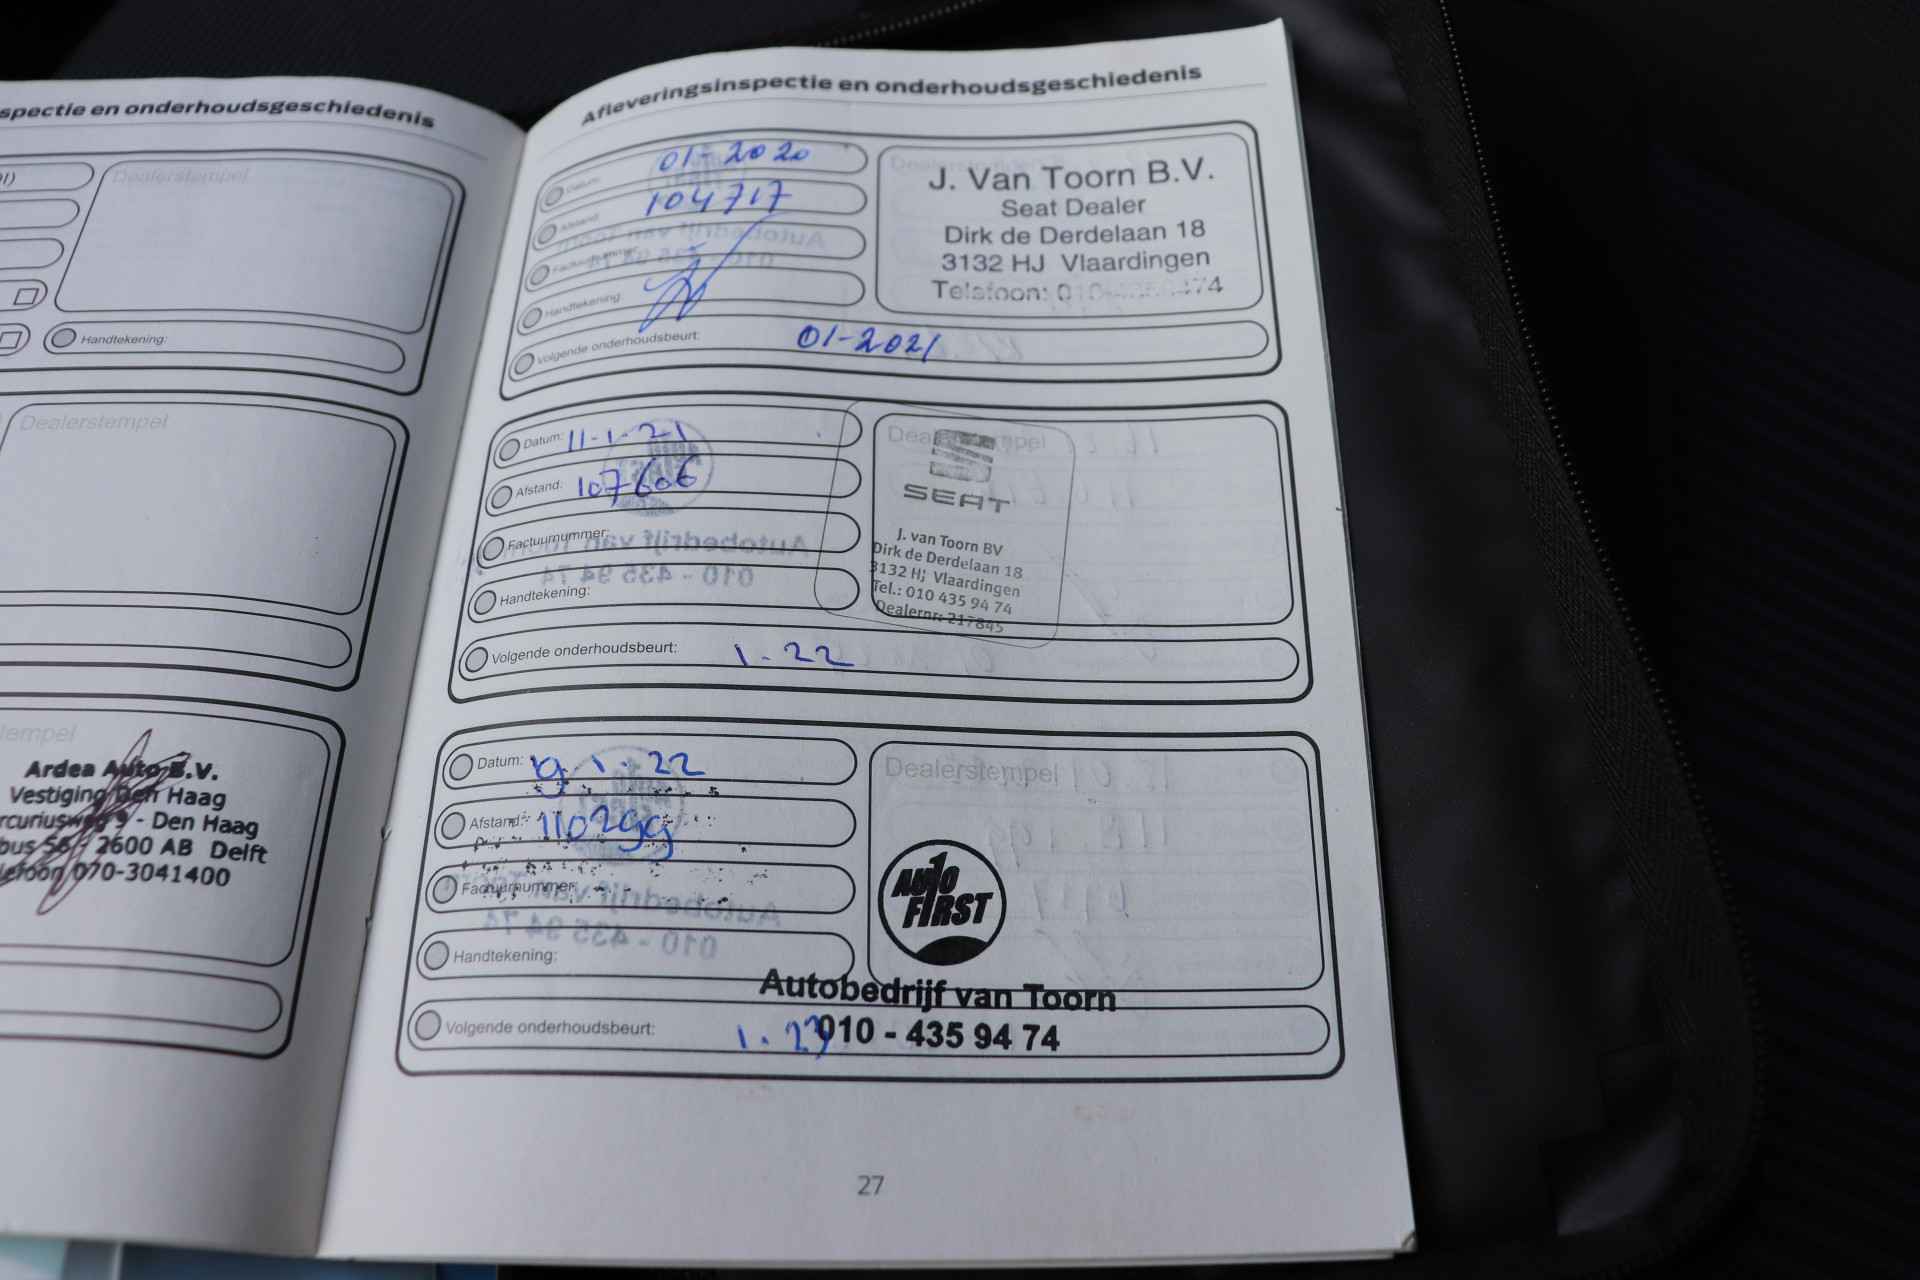 spectie en onderhoudsgeschiedenis
Dealerstempel
Handtekening:
Dealerstempel
Ardea Auto B.V.
Vestiging Den Haag
9 - Den Haag
2600 AB Delft
070-3041400
Afleveringsinspectie en onderhoudsgeschiedenis
Datum: 01-2020
Afstand: 104717
Factuurnummer:
Handtekening:
Volgende onderhoudsbeurt: 01-2021
J. Van Toorn B.V.
Seat Dealer
Dirk de Derdelaan 18
3132 HJ Vlaardingen
Telefoon: 010 474
Datum: 11-1-21
Afstand: 107606
Factuurnummer:
Handtekening:
Volgende onderhoudsbeurt: 1-22
Dealerstempel
SEAT
J. van Toorn BV
Dirk de Derdelaan 18
3132 HJ Vlaardingen
Tel.: 010 435 94 74
Dealernr: 217845
Datum: 19.1.22
Afstand: 110299
Factuurnummer:
Handtekening:
Volgende onderhoudsbeurt: 1.23
Dealerstempel
AUTO
FIRST
Autobedrijf van Toorn
010 - 435 94 74
27